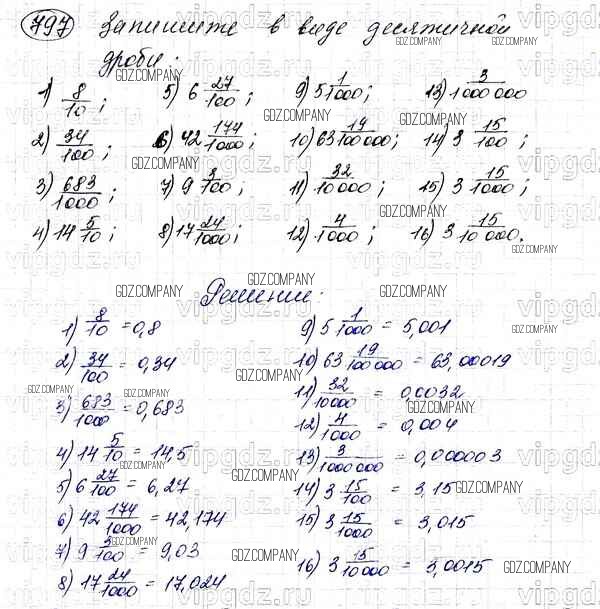 797 Запишите в виде десятичной
дроби:
1) 8/10; 5) 6 27/100; 9) 5 1/1000; 13) 3/1000 000
2) 34/100; 6) 42 174/1000; 10) 63 19/100 000; 14) 3 15/100;
3) 683/1000; 7) 9 3/100; 11) 32/10 000; 15) 3 15/1000;
4) 14 5/10; 8) 17 24/1000; 12) 4/1000; 16) 3 15/10 000.
Решение:
1) 8/10 = 0,8
2) 34/100 = 0,34
3) 683/1000 = 0,683
4) 14 5/10 = 14,5
5) 6 27/100 = 6,27
6) 42 174/1000 = 42,174
7) 9 3/100 = 9,03
8) 17 24/1000 = 17,024
9) 5 1/1000 = 5,001
10) 63 19/100 000 = 63,00019
11) 32/10000 = 0,0032
12) 4/1000 = 0,004
13) 3/1000 000 = 0,000003
14) 3 15/100 = 3,15
15) 3 15/1000 = 3,015
16) 3 15/10 000 = 3,0015
GDZ.COMPANY
vipgdz.ru